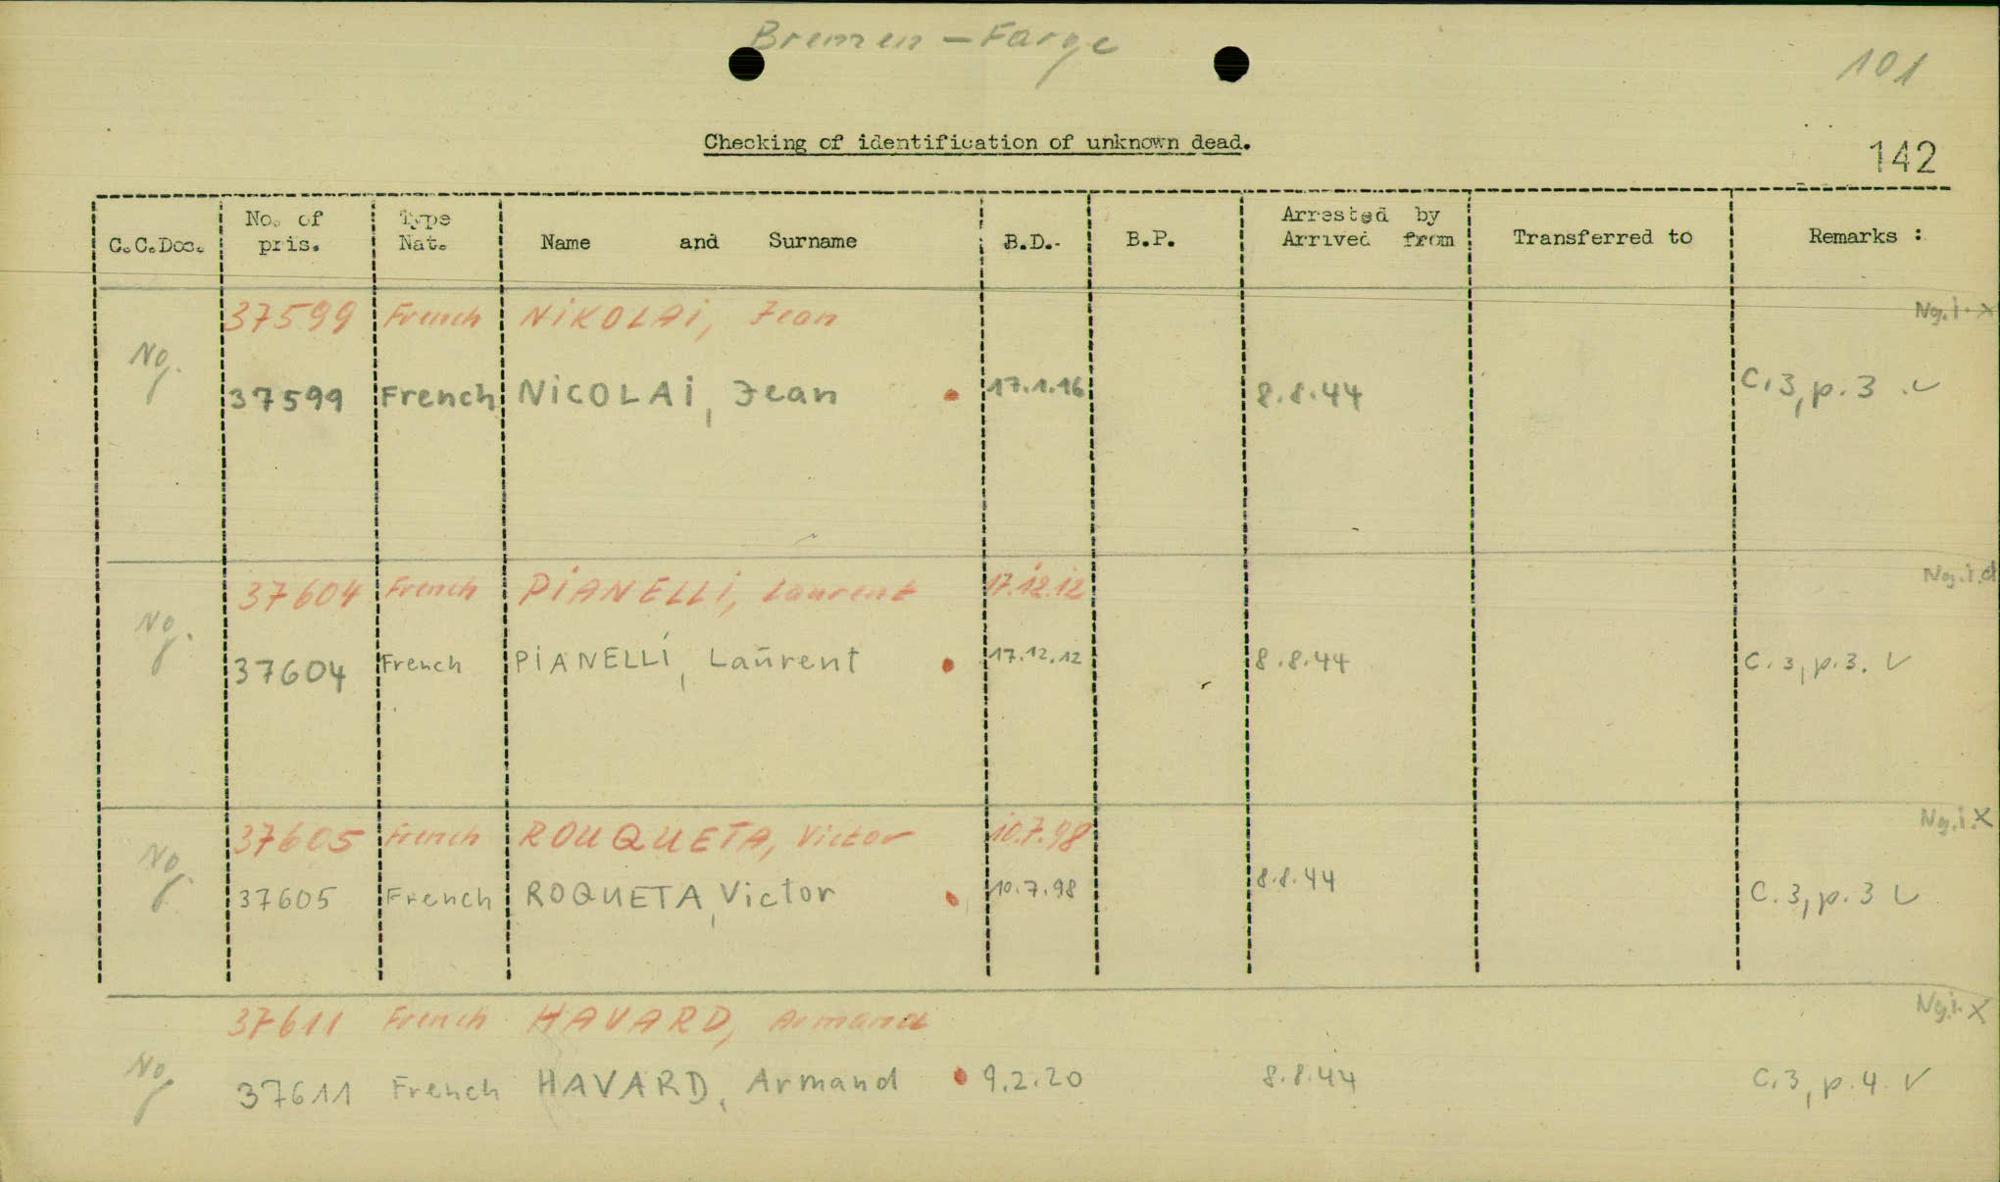 Bremen - Farge
101
Checking of identification of unknown dead.
142
C.C.Doc. No. of pris. Type Nat. Name and Surname B.D.- B.P. Arrested by Arrived from Transferred to Remarks :
37599 French NiKOLAi, Jean Ng.i.X
Ng. 37599 French NiCOLAi, Jean 17.1.16 8.8.44 C.3, p.3 . ✓
37604 French PiANELLi, Laurent 17.12.12 Ng.i.d
Ng. 37604 French PiANELLi, Laūrent 17.12.12 8.8.44 C.3, p.3. ✓
37605 French ROUQUETA, Victor 10.7.98 Ng.i.X
Ng. 37605 French ROQUETA, Victor 10.7.98 8.8.44 C.3, p.3 ✓
37611 French HAVARD, Armand Ng.i.X
Ng. 37611 French HAVARD, Armand 9.2.20 8.8.44 C.3, p.4. ✓